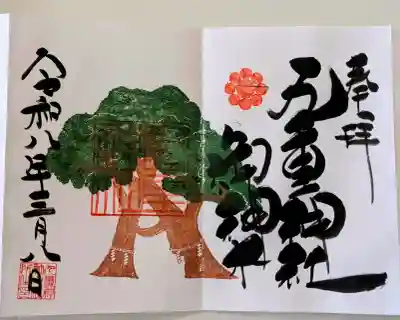 奉拝
神社
御神木
令和八年三月八日